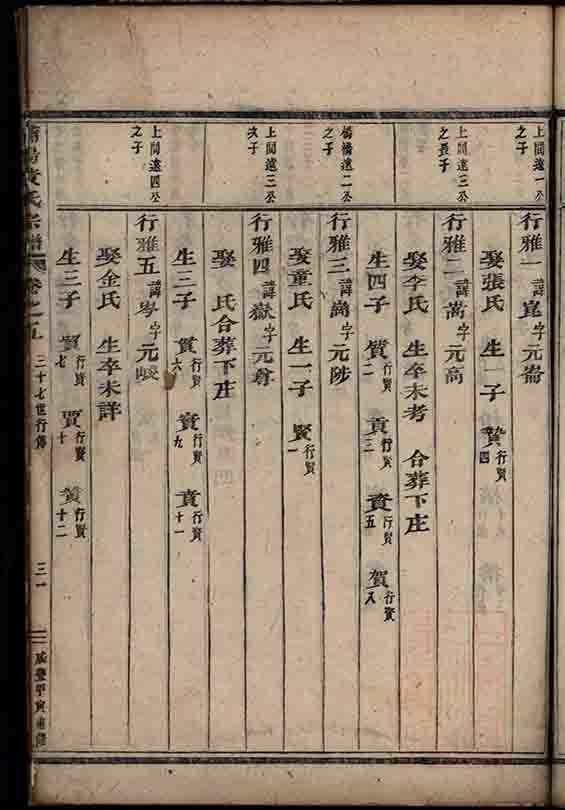 上閭遠一公
之子
行雅一諱崑字元崙
娶張氏 生一子 贄行賢四
上閭遠三公
之長子
行雅二諱嵩字元高
娶李氏 生卒未考 合葬下庄
生四子 質行賢二 貢行賢三 賚行賢五 賀行賢八
楊橋遠二公
之子
行雅三諱崗字元陟
娶童氏 生一子 賢行賢一
上閭遠三公
次子
行雅四諱嶽字元尊
娶 氏合葬下庄
生三子 行賢六 行賢九 賁行賢十一
上閭遠四公
之子
行雅五諱岑字元
娶金氏 生卒未詳
生三子 行賢七 賈行賢十 行賢十二
黄氏宗譜 卷之五 三十七世行傳 三一 咸豐甲寅重修